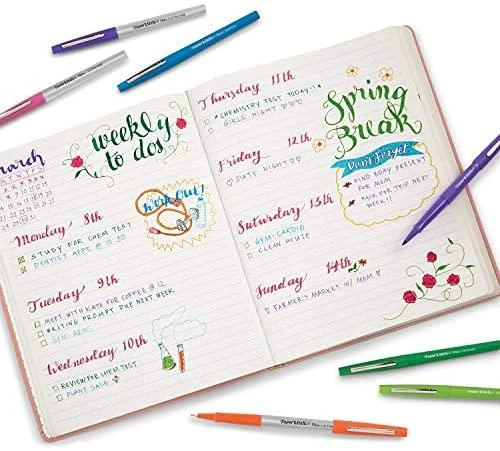 Paper Mate
Paper Mate
weekly
to dos
march
Monday 8th
STUDY FOR CHEM TEST
DENTIST APPT. @ 10:30
Work Out!
Tuesday 9th
MEET WITH KATE FOR COFFEE @ 12
WRITING PROMPT DUE NEXT WEEK
GYM: ARMS
Wednesday 10th
REVIEW FOR CHEM TEST
PLANT SALE
Thursday 11th
CHEMISTRY TEST TODAY!!
GIRLS NIGHT
Friday 12th
DATE NIGHT
Saturday 13th
GYM: CARDIO
CLEAN HOUSE
Sunday 14th
FARMER'S MARKET W/ MOM
Spring
Break
Don't Forget
FIND BDAY PRESENT
FOR MOM
PACK FOR TRIP NEXT
WEEK!!
Paper Mate
Paper Mate
Paper Mate